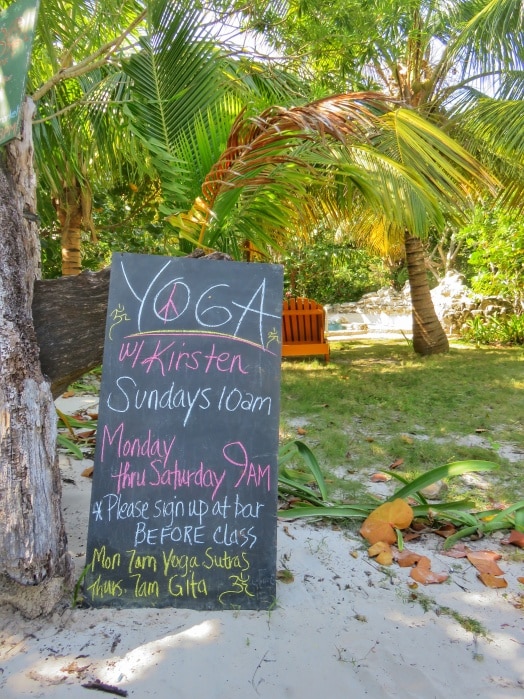 YOGA
w/ Kirsten
Sundays 10am
Monday
thru Saturday 9AM
* Please sign up at bar
BEFORE class
Mon 7am Yoga Sutras
Thurs. 7am Gita ॐ